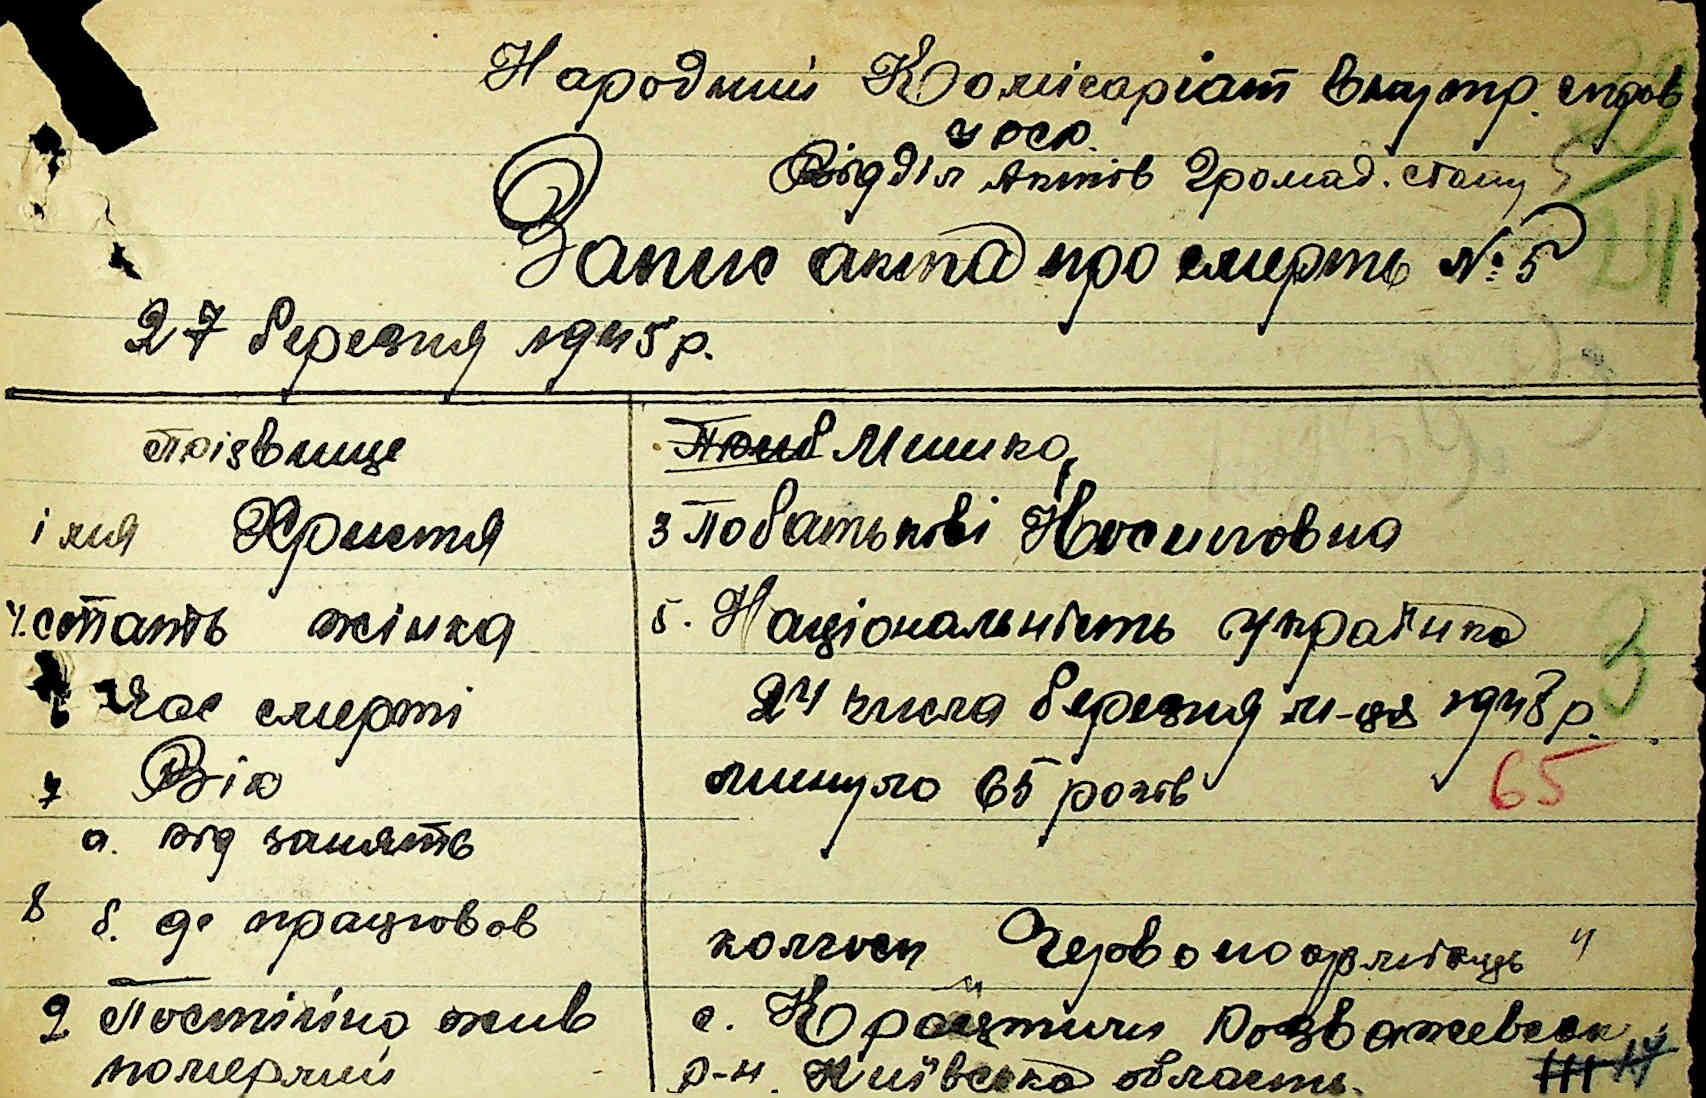 Народний Комісаріат внутр. справ
УРСР.
Відділ Актів Громад. стану
Запис акта про смерть № 5
27 березня 1945 р.
Прізвище Мишко
імя Христя 3 По батькові Йосиповна
4. стать жінка 5. Національність українка
Час смерті 24 числа березня м-ця 1945 р.
7 Вік минуло 65 років 65
а. від занять
8 б. де працював колгосп Червоноармієць"
9 Постійно жив с. Розважевськ
померлий р-н. Київська область.
III IV